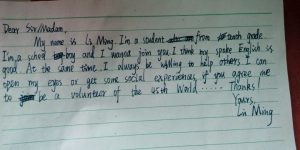 Dear Sir/Madam,
My name is Li Ming. I'm a student from grade
I'm a school boy and I wanna join you. I think my spoke English is
good. At the same time, I always be willing to help others. I can
open my eyes or get some social experiences if you agree me
to be a volunteer of the 45th World ...... Thanks!
Yours,
Li Ming